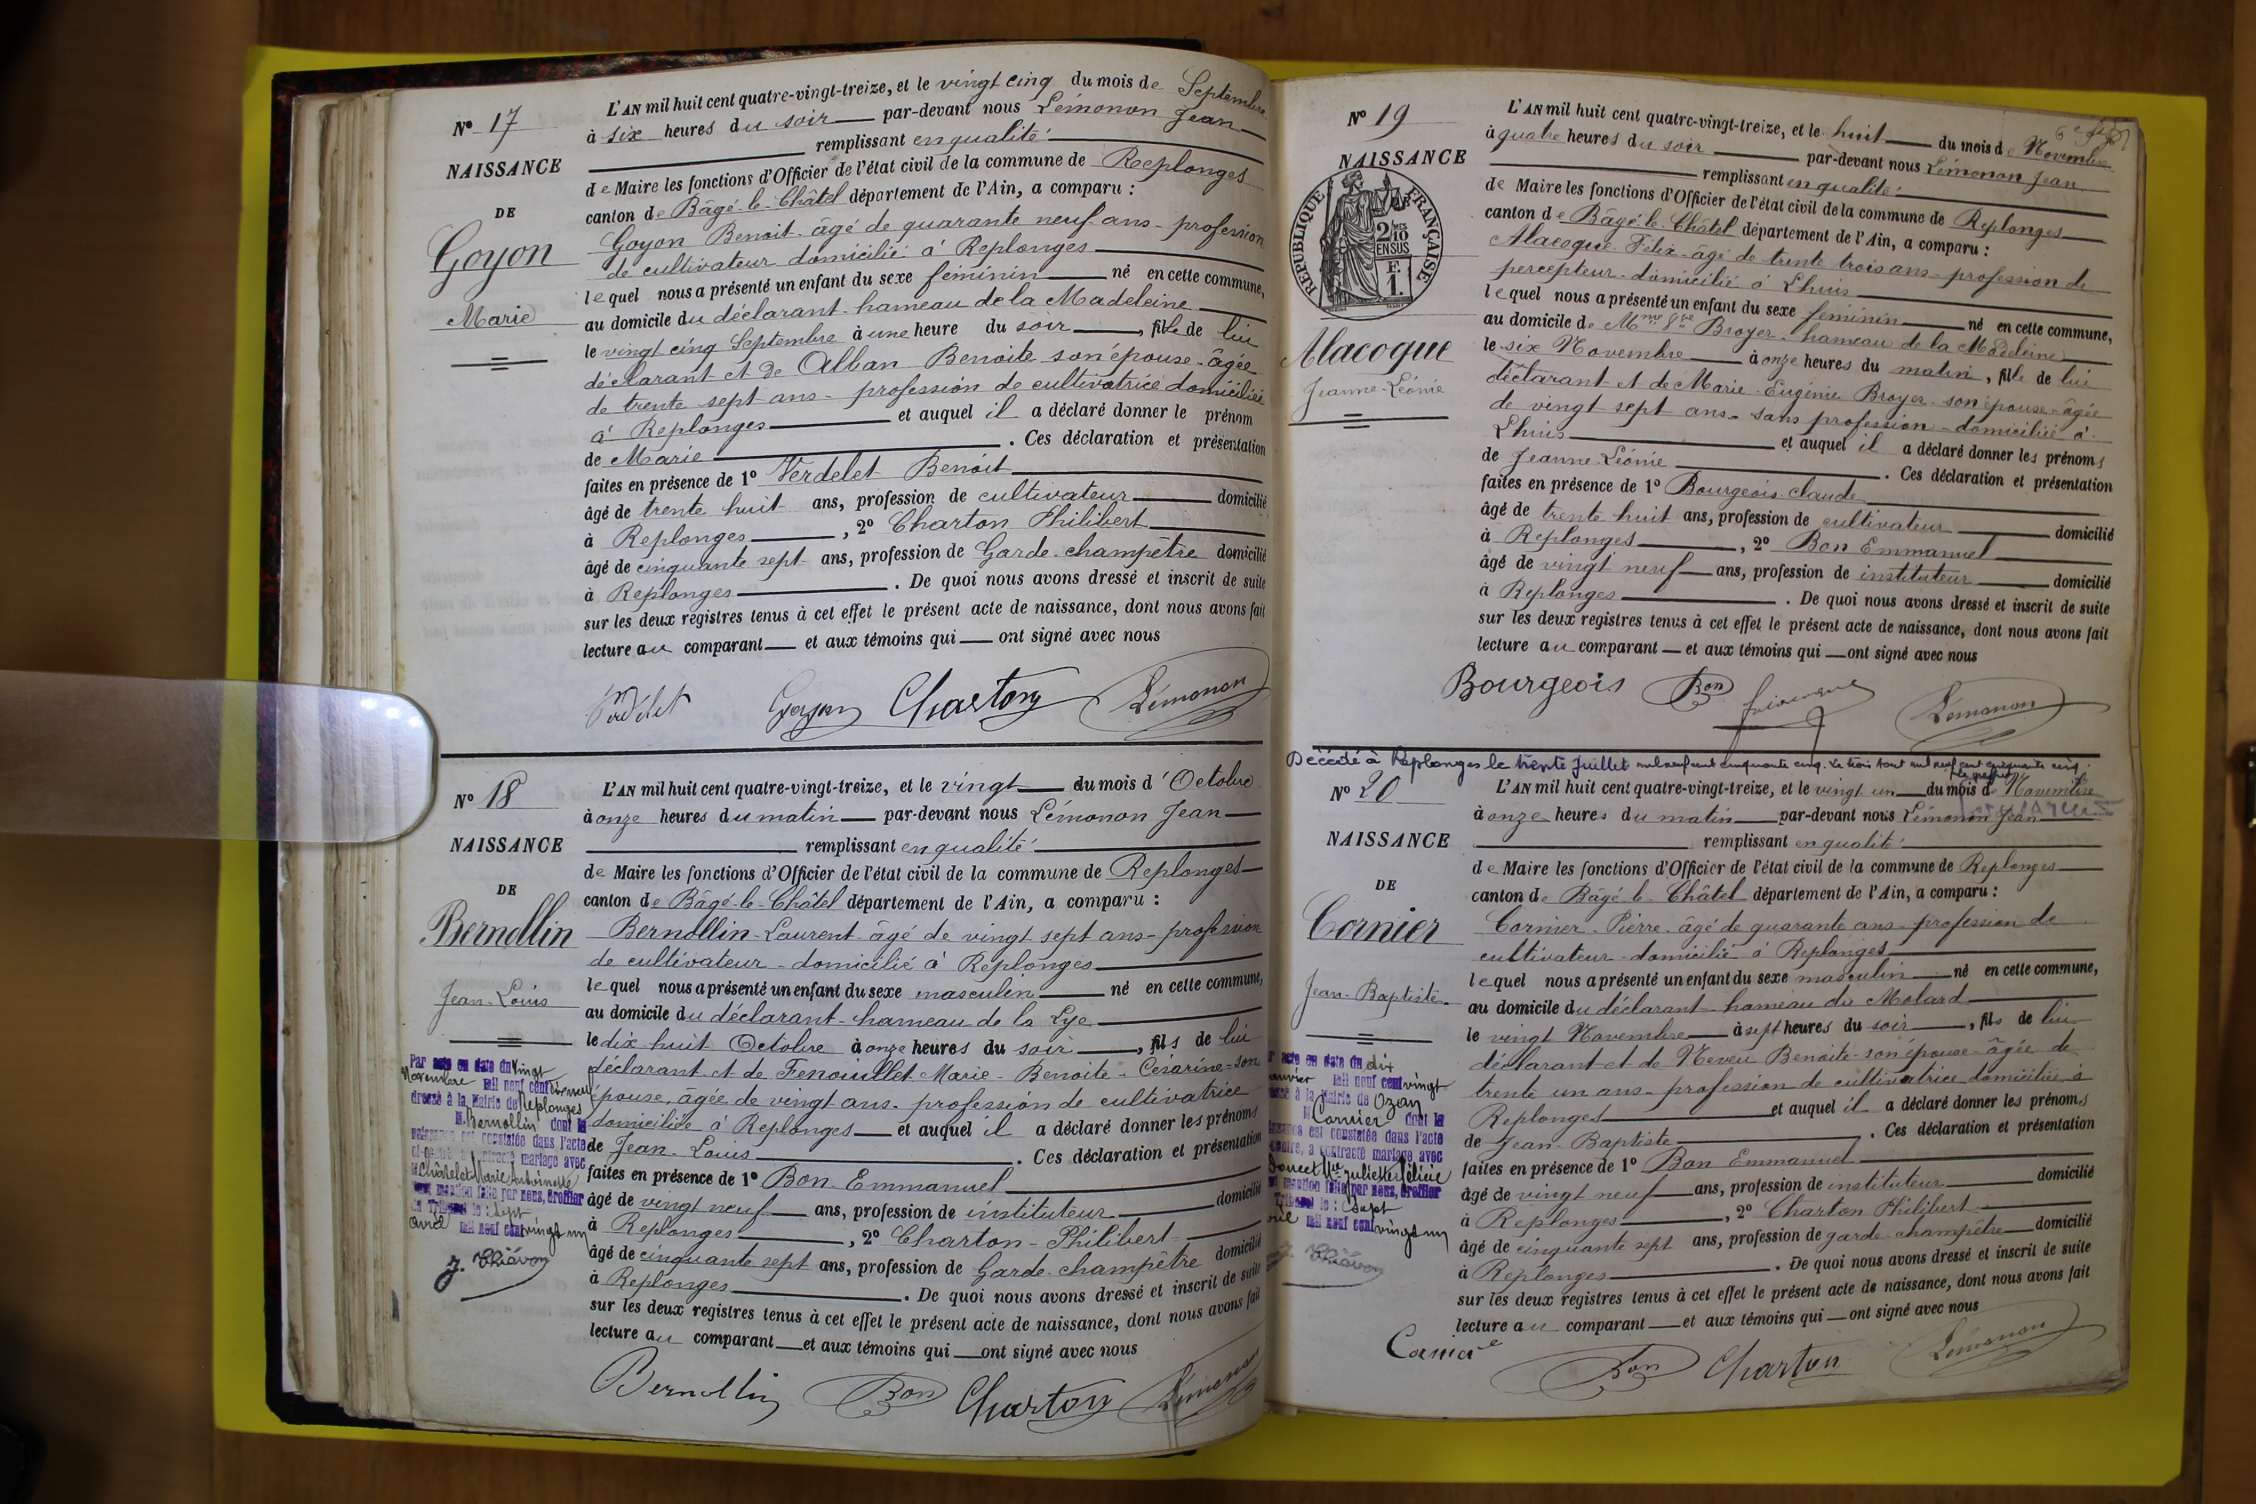 N° 17
NAISSANCE
DE
Goyon
Marie
L'AN mil huit cent quatre-vingt-treize, et le vingt cinq du mois de Septembre
à six heures du soir par-devant nous Lémonon Jean
remplissant en qualité
de Maire les fonctions d'Officier de l'état civil de la commune de Replonges
canton de Bâgé-le-Châtel département de l'Ain, a comparu :
Goyon Benoit âgé de quarante neuf ans - profession
de cultivateur domicilié à Replonges
lequel nous a présenté un enfant du sexe féminin né en cette commune,
au domicile du déclarant hameau de la Madeleine
le vingt cinq Septembre à une heure du soir, fille de lui
déclarant et de Alban Benoite son épouse - âgée
de trente sept ans - profession de cultivatrice domiciliée
à Replonges et auquel il a déclaré donner le prénom
de Marie. Ces déclaration et présentation
faites en présence de 1° Verdelet Benoit
âgé de trente huit ans, profession de cultivateur domicilié
à Replonges, 2° Charton Philibert
âgé de cinquante sept ans, profession de Garde-champêtre domicilié
à Replonges. De quoi nous avons dressé et inscrit de suite
sur les deux registres tenus à cet effet le présent acte de naissance, dont nous avons fait
lecture au comparant et aux témoins qui ont signé avec nous
Verdelet Goyon Charton Lémonon
N° 18
NAISSANCE
DE
Bernollin
Jean-Louis
L'AN mil huit cent quatre-vingt-treize, et le vingt du mois d'Octobre
à onze heures du matin par-devant nous Lémonon Jean
remplissant en qualité
de Maire les fonctions d'Officier de l'état civil de la commune de Replonges
canton de Bâgé-le-Châtel département de l'Ain, a comparu :
Bernollin-Laurent âgé de vingt sept ans - profession
de cultivateur - domicilié à Replonges
lequel nous a présenté un enfant du sexe masculin né en cette commune,
au domicile du déclarant - hameau de la Lye
le dix huit Octobre à onze heures du soir, fils de lui
déclarant et de Fenouillet Marie - Benoite - Césarine - son
épouse, âgée de vingt ans - profession de cultivatrice
domiciliée à Replonges et auquel il a déclaré donner les prénoms
de Jean-Louis. Ces déclaration et présentation
faites en présence de 1° Bon Emmanuel
âgé de vingt neuf ans, profession de instituteur domicilié
à Replonges, 2° Charton - Philibert
âgé de cinquante sept ans, profession de Garde-champêtre domicilié
à Replonges. De quoi nous avons dressé et inscrit de suite
sur les deux registres tenus à cet effet le présent acte de naissance, dont nous avons fait
lecture au comparant et aux témoins qui ont signé avec nous
Par acte en date du vingt
Novembre mil neuf cent dix neuf
dressé à la Mairie de Replonges
M. Bernollin dont la
naissance est constatée dans l'acte
ci-contre, a contracté mariage avec
Châtelet Marie Antoinette
Dont mention faite par nous, Greffier
du Tribunal le : Sept
avril mil neuf cent vingt un
Bernollin Bon Charton Lémonon
N° 19
NAISSANCE
RÉPUBLIQUE FRANÇAISE
2/10 EN SUS
F. 1.
Alacoque
Jeanne-Léonie
L'AN mil huit cent quatre-vingt-treize, et le huit du mois de Novembre
à quatre heures du soir par-devant nous Lémonon Jean
remplissant en qualité
de Maire les fonctions d'Officier de l'état civil de la commune de Replonges
canton de Bâgé-le-Châtel département de l'Ain, a comparu :
Alacoque Félix - âgé de trente trois ans - profession de
percepteur - domicilié à Lhuis
lequel nous a présenté un enfant du sexe féminin né en cette commune,
au domicile de Mme Vve Broyer - hameau de la Madeleine
le six Novembre à onze heures du matin, fille de lui
déclarant et de Marie-Eugénie Broyer - son épouse - âgée
de vingt sept ans - sans profession - domiciliée à
Lhuis et auquel il a déclaré donner les prénoms
de Jeanne-Léonie. Ces déclaration et présentation
faites en présence de 1° Bourgeois Claude
âgé de trente huit ans, profession de cultivateur domicilié
à Replonges, 2° Bon Emmanuel
âgé de vingt neuf ans, profession de instituteur domicilié
à Replonges. De quoi nous avons dressé et inscrit de suite
sur les deux registres tenus à cet effet le présent acte de naissance, dont nous avons fait
lecture au comparant et aux témoins qui ont signé avec nous
Bourgeois Bon Lémonon
Décédé à Replonges le trente Juillet mil neuf cent cinquante cinq. Le trois Aout mil neuf cent cinquante cinq.
N° 20
NAISSANCE
DE
Cornier
Jean-Baptiste
L'AN mil huit cent quatre-vingt-treize, et le vingt un du mois de Novembre
à onze heures du matin par-devant nous Lémonon Jean
remplissant en qualité
de Maire les fonctions d'Officier de l'état civil de la commune de Replonges
canton de Bâgé-le-Châtel département de l'Ain, a comparu :
Cornier - Pierre - âgé de quarante ans - profession de
cultivateur - domicilié à Replonges
lequel nous a présenté un enfant du sexe masculin né en cette commune,
au domicile du déclarant - hameau du Molard
le vingt Novembre à sept heures du soir, fils de lui
déclarant et de Neveu Benoite - son épouse - âgée de
trente un ans - profession de cultivatrice domiciliée à
Replonges et auquel il a déclaré donner les prénoms
de Jean-Baptiste. Ces déclaration et présentation
faites en présence de 1° Bon Emmanuel
âgé de vingt neuf ans, profession de instituteur domicilié
à Replonges, 2° Charton Philibert
âgé de cinquante sept ans, profession de garde-champêtre domicilié
à Replonges. De quoi nous avons dressé et inscrit de suite
sur les deux registres tenus à cet effet le présent acte de naissance, dont nous avons fait
lecture au comparant et aux témoins qui ont signé avec nous
acte en date du dix
mil neuf cent vingt
à la Mairie de Ozan
Cornier dont la
est constatée dans l'acte
a contracté mariage avec
Juliette Félicie
mention faite par nous, Greffier
Tribunal le : Sept
mil neuf cent vingt un
Bon Charton Lémonon